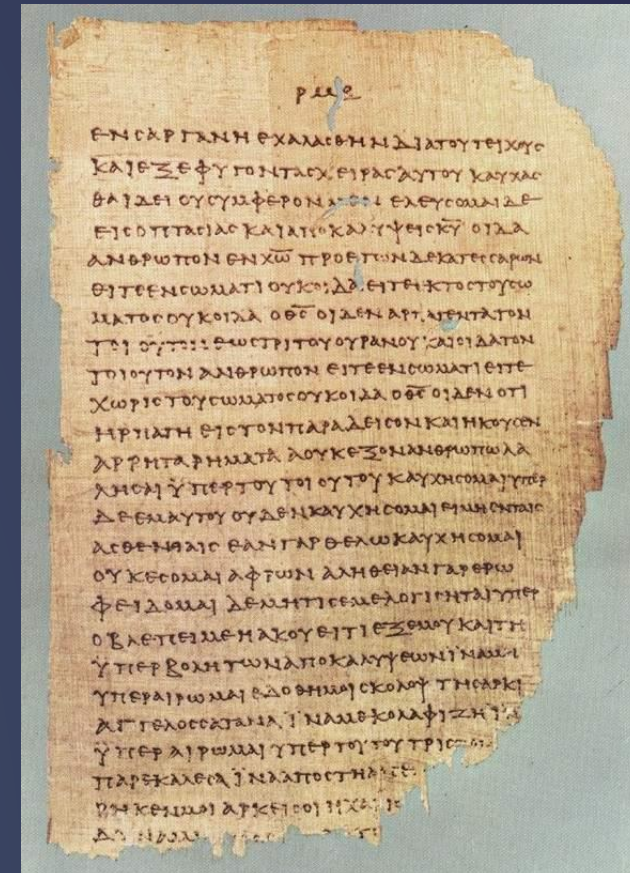 ρμε
ΕΝϹΑΡΓΑΝΗ ΕΧΑΛΑϹΘΗΝ ΔΙΑΤΟΥΤΕΙΧΟΥϹ
ΚΑΙΕΞΕΦΥΓΟΝΤΑϹΧΕΙΡΑϹΑΥΤΟΥ ΚΑΥΧΑϹ
ΘΑΙΔΕΙ ΟΥϹΥΜΦΕΡΟΝ ΕΛΕΥϹΟΜΑΙΔΕ
ΕΙϹΟΠΤΑϹΙΑϹ ΚΑΙΑΠΟΚΑΛΥΨΕΙϹΚ̅Υ̅ ΟΙΔΑ
ΑΝΘΡΩΠΟΝ ΕΝΧ̅Ω̅ ΠΡΟΕΤΩΝΔΕΚΑΤΕϹϹΑΡΩΝ
ΕΙΤΕΕΝϹΩΜΑΤΙ ΟΥΚΟΙΔΑ ΕΙΤΕΕΚΤΟϹΤΟΥϹΩ
ΜΑΤΟϹΟΥΚΟΙΔΑ ΟΘ̅Ϲ̅ ΟΙΔΕΝ ΑΡΠΑΓΕΝΤΑΤΟΝ
ΤΟΙΟΥΤΟΝΕΩϹΤΡΙΤΟΥΟΥΡΑΝΟΥ ΚΑΙΟΙΔΑΤΟΝ
ΤΟΙΟΥΤΟΝ ΑΝΘΡΩΠΟΝ ΕΙΤΕΕΝϹΩΜΑΤΙΕΙΤΕ
ΧΩΡΙϹΤΟΥϹΩΜΑΤΟϹΟΥΚΟΙΔΑ ΟΘ̅Ϲ̅ ΟΙΔΕΝ ΟΤΙ
ΗΡΠΑΓΗ ΕΙϹΤΟΝΠΑΡΑΔΕΙϹΟΝ ΚΑΙΗΚΟΥϹΕΝ
ΑΡΡΗΤΑΡΗΜΑΤΑ ΑΟΥΚΕΞΟΝΑΝΘΡΩΠΩΛΑ
ΛΗϹΑΙ ΫΠΕΡΤΟΥΤΟΙΟΥΤΟΥ ΚΑΥΧΗϹΟΜΑΙΥΠΕΡ
ΔΕΕΜΑΥΤΟΥ ΟΥΔΕΝΚΑΥΧΗϹΟΜΑΙ ΕΙΜΗΕΝΤΑΙϹ
ΑϹΘΕΝΕΙΑΙϹ ΕΑΝΓΑΡΘΕΛΩΚΑΥΧΗϹΟΜΑΙ
ΟΥΚΕϹΟΜΑΙ ΑΦΡΩΝ ΑΛΗΘΕΙΑΝΓΑΡΕΡΩ
ΦΕΙΔΟΜΑΙ ΔΕΜΗΤΙϹΕΜΕΛΟΓΙϹΗΤΑΙΥΠΕΡ
ΟΒΛΕΠΕΙΜΕΗΑΚΟΥΕΙΤΙΕΞΕΜΟΥΚΑΙΤΗ
ΫΠΕΡΒΟΛΗΤΩΝΑΠΟΚΑΛΥΨΕΩΝΪΝΑΜΗ
ΥΠΕΡΑΙΡΩΜΑΙ ΕΔΟΘΗΜΟΙϹΚΟΛΟΨ ΤΗϹΑΡΚΙ
ΑΓΓΕΛΟϹϹΑΤΑΝΑ ΪΝΑΜΕΚΟΛΑΦΙΖΗ
ΫΠΕΡΑΙΡΩΜΑΙ ΥΠΕΡΤΟΥΤΟΥΤΡΙϹ
ΠΑΡΕΚΑΛΕϹΑ ΪΝΑΑΠΟϹΤΗ
ΡΗΚΕΝΜΟΙ ΑΡΚΕΙϹΟΙΗΧΑΡΙϹ